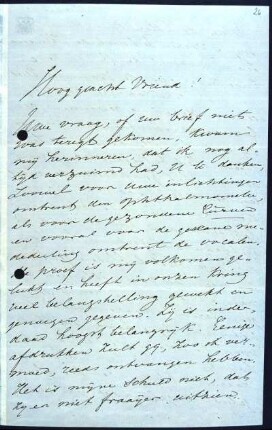 Hooggeacht Vriend!
Uwe vraag, of uw brief niet
was teregt gekomen, kwam
mij herinneren, dat ik nog al-
tijd verzuimd had, U te danken,
zoowel voor Uwe inlichtingen
omtrent den Ophthalmometer
als voor de gezondene
en vooral voor de gedane me-
dedeeling omtrent de vocalen.
De proef is mij volkomen ge-
lukt en heeft in onzen kring
veel belangstelling gewekt en
genoegen gegeven. Zij is inder-
daad hoogst belangrijk. Eenige
afdrukken zult gij, zoo ik ver-
moed, reeds ontvangen hebben.
Het is mijne schuld niet, dat
zij er niet fraaijer uitzien.